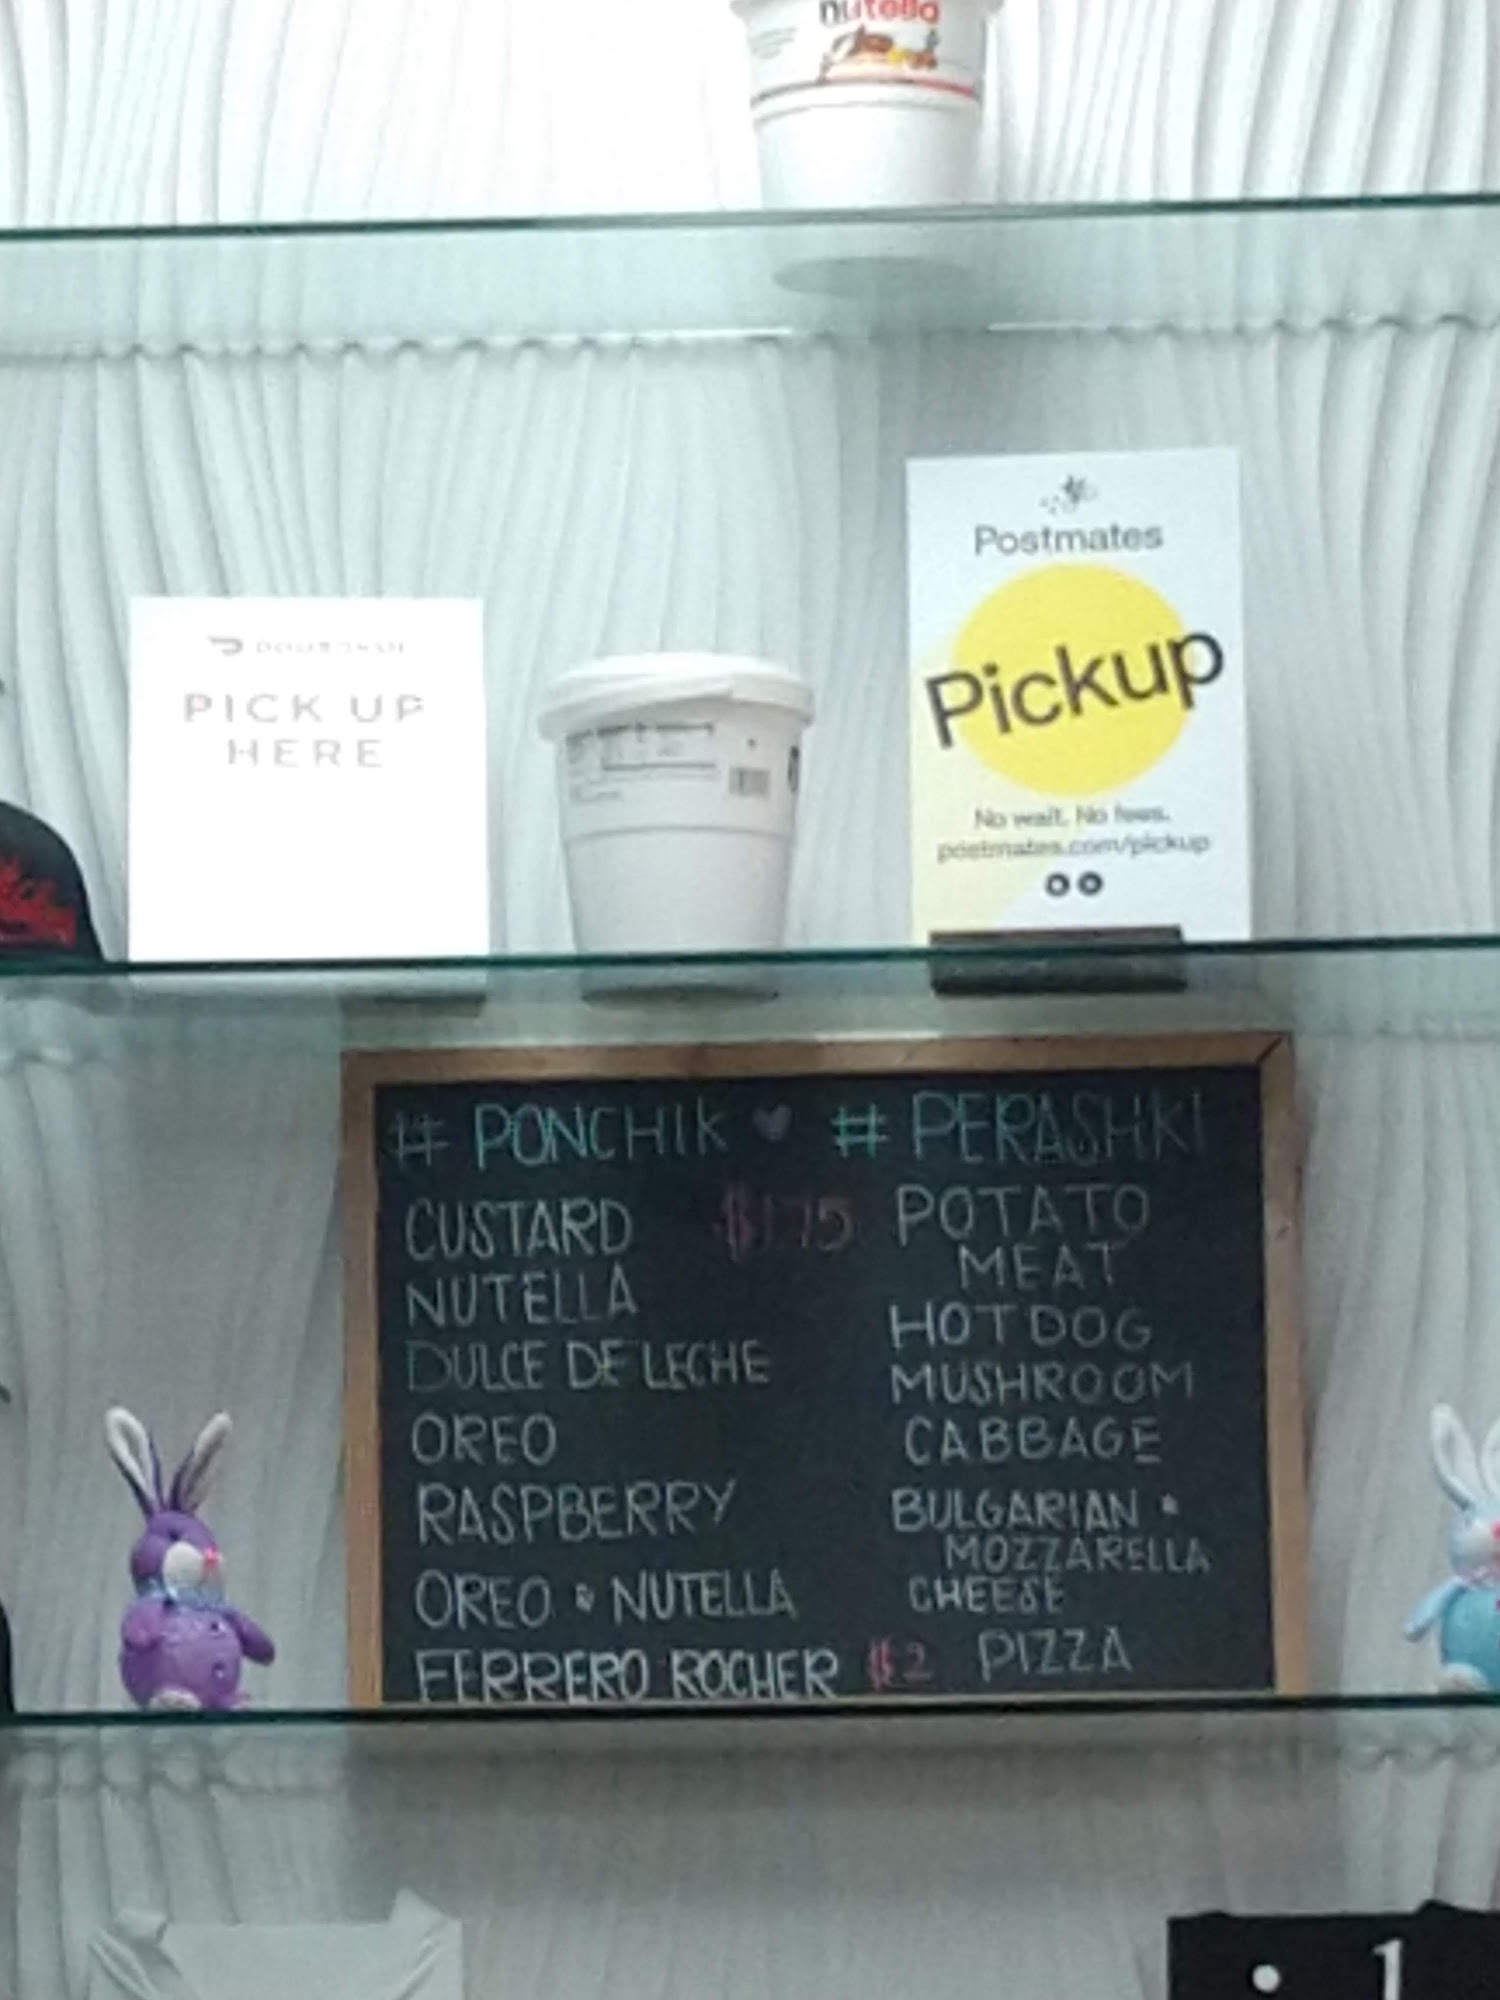 nutella
DOORDASH
PICK UP
HERE
Postmates
Pickup
No wait. No fees.
postmates.com/pickup
# PONCHIK # PERASHKI
CUSTARD $1.75
NUTELLA
DULCE DE LECHE
OREO
RASPBERRY
OREO & NUTELLA
FERRERO ROCHER $2
POTATO
MEAT
HOTDOG
MUSHROOM
CABBAGE
BULGARIAN &
MOZZARELLA
CHEESE
PIZZA